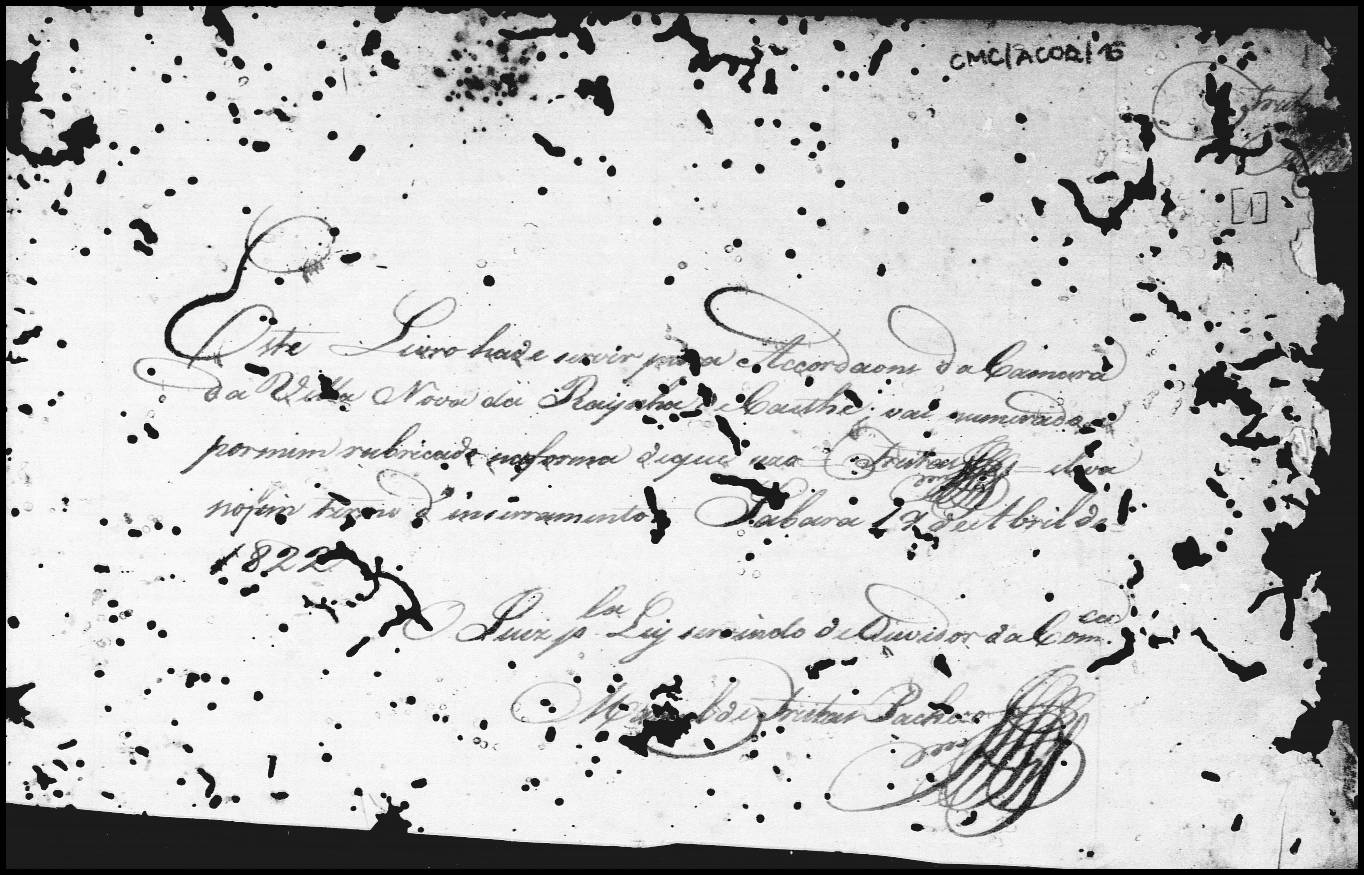 CMC/ACOR/16
Freitas
[1]
Este Livro hade servir para Accordaons da Camara
da Villa Nova da Raynha de Caethe, vai numerado e
por mim rubricado na forma de que uzo Freitas e leva
no fim termo d'incerramento Sabará 19 de Abril de
1822
O Juiz pla Ley servindo de Provedor da Comca
Manoel de Freitas Pacheco